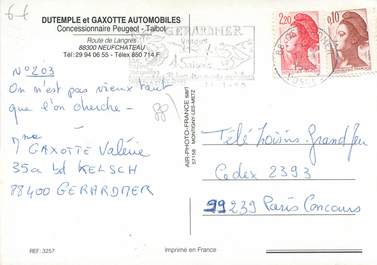 DUTEMPLE et GAXOTTE AUTOMOBILES
Concessionnaire Peugeot - Talbot
Route de Langres
88300 NEUFCHATEAU
Tél: 29 94 06 55 - Télex 850 714 F
GERARDMER
2,20
0,10
N° 203
On n'est pas vieux tant
que l'on cherche -
Mme GAXOTTE Valérie
35a bd KELSCH
88400 GERARDMER
AIR-PHOTO-FRANCE
57158 MONTIGNY-LES-METZ
Télé Loisirs Grand Jeu
Cedex 2393
99239 Paris Concours
REF: 3257
Imprimé en France